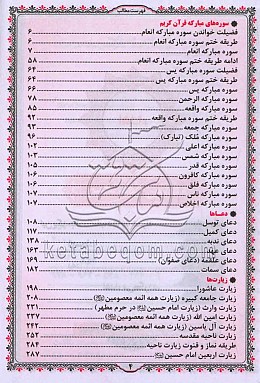 فهرست مطالب
سوره‌های مبارکه قرآن کریم
فضیلت خواندن سوره مبارکه انعام ۶
طریقه ختم سوره مبارکه انعام ۶
سوره مبارکه انعام ۷
ادامه طریقه ختم سوره مبارکه انعام ۵۸
فضیلت سوره مبارکه یس ۶۴
طریقه ختم سوره مبارکه یس ۶۴
سوره مبارکه یس ۶۶
سوره مبارکه الرحمن ۷۸
سوره مبارکه واقعه ۸۵
طریقه ختم سوره مبارکه واقعه ۹۲
سوره مبارکه جمعه ۹۳
سوره مبارکه مُلک (تبارک) ۹۶
سوره مبارکه اعلی ۱۰۲
سوره مبارکه شمس ۱۰۳
سوره مبارکه قدر ۱۰۵
سوره مبارکه کافرون ۱۰۶
سوره مبارکه فلق ۱۰۶
سوره مبارکه ناس ۱۰۷
سوره مبارکه اخلاص ۱۰۷
دعاها
دعای توسل ۱۰۸
دعای کمیل ۱۱۷
دعای ندبه ۱۳۸
دعای عهد
دعای علقمه (دعای صفوان) ۱۶۹
دعای سمات ۱۸۲
زیارت‌ها
زیارت عاشورا ۱۹۸
زیارت جامعه کبیره (زیارت همه ائمه معصومین) ۲۰۸
زیارت وارث (زیارت امام حسین در حرم مطهر) ۲۳۱
زیارت امین الله (زیارت همه ائمه معصومین) ۲۳۷
زیارت آل یاسین (زیارت همه ائمه معصومین) ۲۴۲
زیارت ناحیه مقدسه ۲۵۲
طریقه نماز و قنوت زیارت ناحیه ۲۸۴
زیارت اربعین امام حسین ۲۸۷
۴
ketabeqom.com